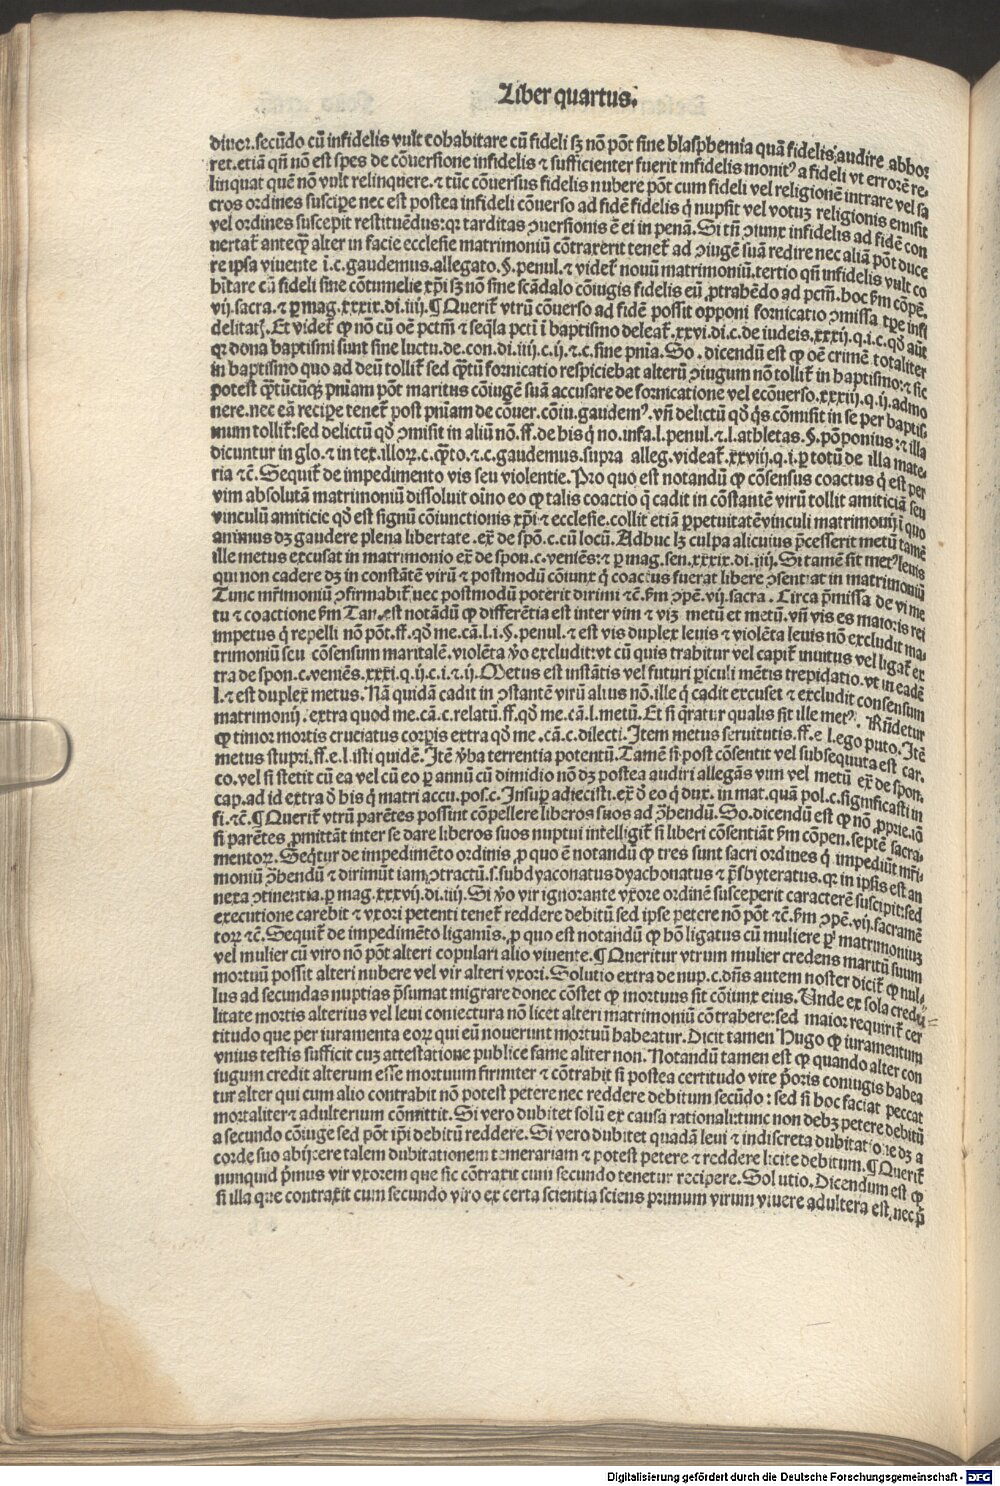 Liber quartus.
diuor. secūdo cū infidelis vult cohabitare cū fideli sꝫ nō pōt sine blasphemia quā fidelis audire abhor
ret. etiā qn̄ nō est spes de cōuersione infidelis ⁊ sufficienter fuerit infidelis monitꝰ a fideli vt errorē re⸗
linquat quē nō vult relinquere. ⁊ tūc cōuersus fidelis nubere pōt cum fideli vel religionē intrare vel sa
cros ordines suscipe nec est postea infideli cōuerso ad fidē fidelis q̇ nupsit vel votuꝫ religionis emisit
vel ordines suscepit restituēdus: qꝛ tarditas ꝯuersionis ē ei in penā. Si tn̄ ꝯiunx infidelis ad fidē con
uertat̄ anteqꝫ alter in facie ecclesie matrimoniū cōtraxerit tenet̄ ad ꝯiugē suā redire nec aliā pōt duce
re ipsa viuente ī. c. gaudemus. allegato. §. penul. ⁊ videt̄ nouū matrimoniū. tertio qn̄ infidelis vult co
bitare cū fideli sine cōtumelie xp̄i sꝫ nō sine scādalo cōiugis fidelis eū ꝓtrahēdo ad pctm̄. hoc fm̄ cōpē.
vij. sacra. ⁊ ꝑ mag. xxxix. di. iiij. ¶ Querit̄ vtrū cōuerso ad fidē possit opponi fornicatio ꝯmissa tꝑe infi
delitatꝭ. Et videt̄ ꝙ nō cū oē pctm̄ ⁊ seq̄la pcti ī baptismo deleat̄. xxvi. di. c. de iudeis. xxxij. q. i. c. qd̄ aūt
qꝛ dona baptismi sunt sine luctu. de. con. di. iiij. c. ij. ⁊. c. sine pnīa. So. dicendū est ꝙ oē crimē totaliter
in baptismo quo ad deū tollit̄ sed qꝫtū fornicatio respiciebat alterū ꝯiugum nō tollit̄ in baptismo: ⁊ sic
potest qꝫtūcūqꝫ pniam pōt maritus cōiugē suā accusare de fornicatione vel ecōuerso. xxxiij. q. ij. admo
nere. nec eā recipe tenet̄ post pniam de cōuer. cōiu. gaudemꝰ. vn̄ delictū qd̄ q̇s cōmisit in se per baptis⸗
mum tollit̄: sed delictū qd̄ ꝯmisit in aliū nō. ff. de his q̇ no. infa. l. penul. ⁊. l. athletas. §. pōponius: ⁊ illa
dicuntur in glo. ⁊ in tex. illoꝝ. c. qꝫto. ⁊. c. gaudemus. supra alleg. videat̄. xxviij. q. i. ꝑ totū de illa mate⸗
ria ⁊c̄. Sequit̄ de impedimento vis seu violentie. Pro quo est notandū ꝙ cōsensus coactus q̇ est per
vim absolutā matrimoniū dissoluit oīno eo ꝙ talis coactio q̄ cadit in cōstantē virū tollit amiticiā seu
vinculū amiticie qd̄ est signū cōiunctionis xp̄i ⁊ ecclesie. tollit etiā ꝑpetuitatē vinculi matrimonij ī quo
animus dꝫ gaudere plena libertate. ex̄ de spō. c. cū locū. Adhuc lꝫ culpa alicuius p̄cesserit metū tamē
ille metus excusat in matrimonio ex̄ de spon. c. veniēs: ⁊ ꝑ mag. sen. xxxix. di. iiij. Si tamē sit metꝰ leuis
qui non cadere dꝫ in constātē virū ⁊ postmodū cōiunx q̇ coactus fuerat libere ꝯsentiat in matrimoniū
Tunc mr̄imoniū ꝯfirmabit̄ nec postmodū poterit dirimi ⁊c̄. fm̄ ꝯpē. vij. sacra. Circa p̄missa de vi me
tu ⁊ coactione fm̄ Tan. est notādū ꝙ differētia est inter vim ⁊ viꝫ metū et metū. vn̄ vis es maioris rei
impetus q̇ repelli nō pōt. ff. qd̄ me. cā. l. i. §. penul. ⁊ est vis duplex leuis ⁊ violēta leuis nō excludit ma⸗
trimoniū seu cōsensum maritalē. violēta v̄o excludit: vt cū quis trahitur vel capit̄ inuitus vel ligat̄ ex
tra de spon. c. veniēs. xxxi. q. ij. c. i. ⁊. ij. Metus est instātis vel futuri ꝑiculi mētis trepidatio. vt in eadē
l. ⁊ est duplex metus. Nā quidā cadit in ꝯstantē virū alius nō. ille q̇ cadit excuset ⁊ excludit consensum
matrimonij. extra quod me. cā. c. relatū. ff. qd̄ me. cā. l. metū. Et si q̄ratur qualis sit ille metꝰ. Rn̄detur
ꝙ timor mortis cruciatus corꝑis extra qd̄ me. cā. c. dilecti. Item metus seruitutis. ff. e l. ego puto. Itē
metus stupri. ff. e. l. isti quidē. Itē v̄ba terrentia potentū. Tamē si post cōsentit vel subsequuta est car.
co. vel si stetit cū ea vel cū eo ꝑ annū cū dimidio nō dꝫ postea audiri allegās vim vel metū ex̄ de spon.
cap. ad id extra d̄ his q̇ matri accu. pos. c. Insuꝑ adiecisti. ex̄ d̄ eo q̇ dux. in mat. quā pol. c. significasti in
fi. ⁊c̄. ¶ Querit̄ vtrū parētes possint cōpellere liberos suos ad ꝯ̄hendū. So. dicendū est ꝙ nō ꝓprie. iō
si parētes ꝓmittāt inter se dare liberos suos nuptui intelligit̄ si liberi cōsentiāt fm̄ cōpen. septē sacra⸗
mentoꝝ. Seq̄tur de impedimēto ordinis ꝓ quo ē notandū ꝙ tres sunt sacri ordines q̇ impediūt mr̄i⸗
moniū ꝯ̄hendū ⁊ dirimūt iam ꝯtractū. s. subdyaconatus dyachonatus ⁊ p̄sbyteratus. qꝛ in ipsis est an
nexa ꝯtinentia. ꝑ mag. xxxvij. di. iiij. Si v̄o vir ignorante vxore ordinē susceperit caracterē suscipit: sed
executione carebit ⁊ vxori petenti tenet̄ reddere debitū sed ipse petere nō pōt ⁊c̄. fm̄ ꝯpē. vij. sacramē
toꝝ ⁊c̄. Sequit̄ de impedimēto ligamīs ꝓ quo est notandū ꝙ hō ligatus cū muliere ꝑ matrimoniuꝫ
vel mulier cū viro nō pōt alteri copulari alio viuente. ¶ Queritur vtrum mulier credens maritū suum
mortuū possit alteri nubere vel vir alteri vxori. Solutio extra de nup. c. dn̄s autem noster dicit̄ ꝙ nul⸗
lus ad secundas nuptias p̄sumat migrare donec cōstet ꝙ mortuus sit cōiunx eius. Unde ex sola credu⸗
litate mortis alterius vel leui coniectura nō licet alteri matrimoniū cōtrahere: sed maior requirit̄ cer
titudo que per iuramenta eoꝝ qui eū nouerunt mortuū habeatur. Dicit tamen Hugo ꝙ iuramentum
vnius testis sufficit cuꝫ attestatione publice fame aliter non. Notandū tamen est ꝙ quando alter con
iugum credit alterum esse mortuum firmiter ⁊ cōtrahit si postea certitudo vite p̄oris coniugis habea
tur alter qui cum alio contrahit nō potest petere nec reddere debitum secūdo: sed si hoc faciat peccat
mortaliter ⁊ adulterium cōmittit. Si vero dubitet solū ex causa rationali: tunc non debꝫ petere debitū
a secundo cōiuge sed pōt ip̄i debitū reddere. Si vero dubitet quadā leui ⁊ indiscreta dubitatione dꝫ a
corde suo abijcere talem dubitationem temerariam ⁊ potest petere ⁊ reddere licite debitum. ¶ Querit̄
nunquid p̄mus vir vxorem que sic cōtraxit cum secundo tenetur recipere. Solutio. Dicendum est ꝙ
si illa que contraxit cum secundo viro ex certa scientia sciens primum virum viuere adultera est, nec p̄
Digitalisierung gefördert durch die Deutsche Forschungsgemeinschaft - DFG